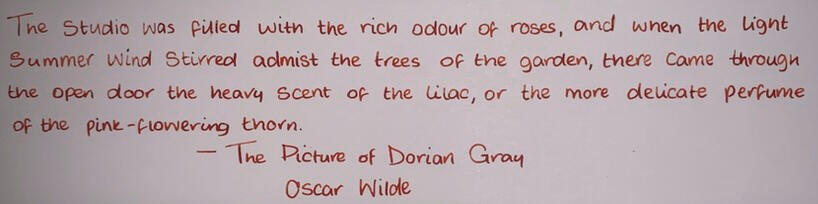 The Studio was filled with the rich odour of roses, and when the light
Summer wind Stirred admist the trees of the garden, there came through
the open door the heavy scent of the lilac, or the more delicate perfume
of the pink-flowering thorn.
— The Picture of Dorian Gray
Oscar Wilde